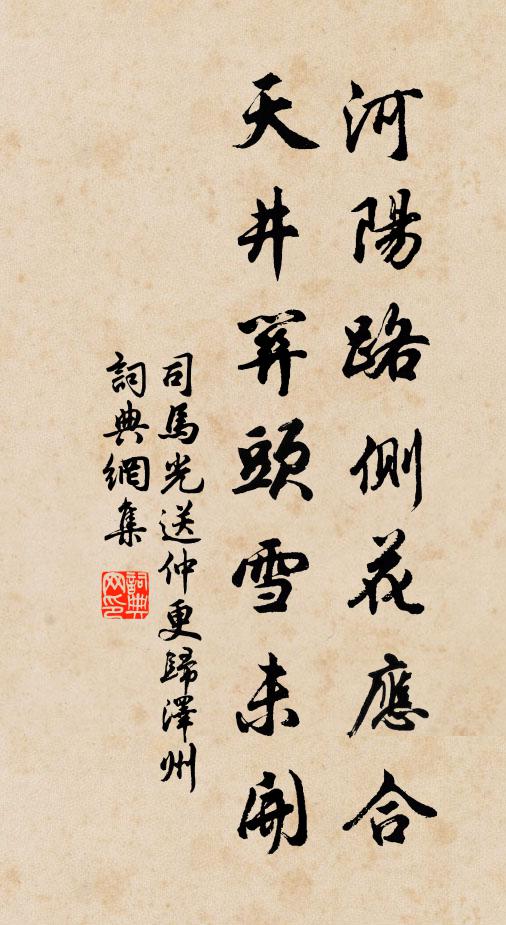 河陽路側花應合
天井關頭雪未開
司馬光送仲更歸澤州
詞典網集
詞典
网印